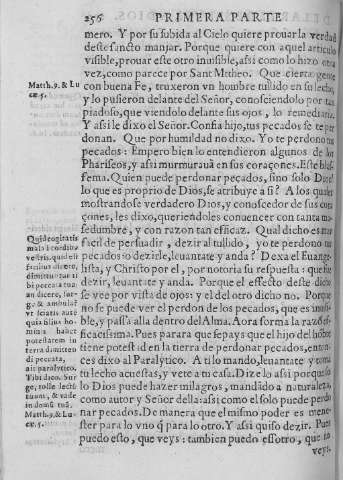 256 PRIMERA PARTE
mero. Y por su subida al Cielo quiere prouar la verdad
deste sancto manjar. Porque quiere con aquel articulo
visible, prouar este otro inuisible, assi como lo hizo otra
vez, como parece por Sant Matheo. Que cierta gente
con buena Fe, truxeron vn hombre tullido en su lecho,
y lo pusieron delante del Señor, conosciendolo por tan
piadoso, que viendolo delante sus ojos, lo remediaria.
Y assi le dixo el Señor. Confia hijo, tus pecados se te per
donan. Que por humildad no dixo. Yo te perdono tus
pecados: Empero bien lo entendieron algunos de los
Phariseos, y assi murmurauã en sus coraçones. Este blas-
fema. Quien puede perdonar pecados, sino solo Dios?
lo que es proprio de Dios, se atribuye a si? A los quales
mostrandose verdadero Dios, y conoscedor de sus cora
çones, les dixo, queriendoles conuencer con tanta man
sedumbre, y con razon tan efficaz. Qual dicho es mas
facil de persuadir, dezir al tullido, yo te perdono tus
pecados: o dezirle, leuantate y anda? Dexa el Euange-
lista, y Christo por el, por notoria su respuesta: que fue
dezir, leuantate y anda. Porque el effecto deste dicho
se vee por vista de ojos: y el del otro dicho no. Porque
no se puede ver el perdon de los pecados, que es inuisi-
ble, y passa allà dentro del Alma. Aora forma la razõ ef-
ficacissima. Pues parara que sepays que el hijo del hõbre
tiene potestad en la tierra de perdonar pecados, enton
ces dixo al Paralytico. A ti lo mando, leuantate y toma
tu lecho acuestas, y vete a tu casa. Dize lo assi porque so
lo Dios puede hazer milagros, mandãdo a naturaleza,
como autor y Señor della: assi como el solo puede perdo
nar pecados. De manera que el mismo poder es mene-
ster para lo vno q̃ para lo otro. Y assi quiso dezir. Pues
puedo esto, que veys: tambien puedo essotro, que no
veys.
Matth. 9. & Lu
cæ. 5.
Quid cogitatis
mala in cordibꝰ
vestris, quid est
facilius dicere,
dimittũtur tibi
peccata tua,
an dicere, sur-
ge, & ambula?
vt sciatis autẽ
quia filius ho-
minis habet
potestatem in
terra dimitten
di peccata,
ait paralytico.
Tibi dico. Sur
ge, tolle lectũ
tuum, & vade
in domũ tuã,
Matth. 9. & Lu
cæ. 5.